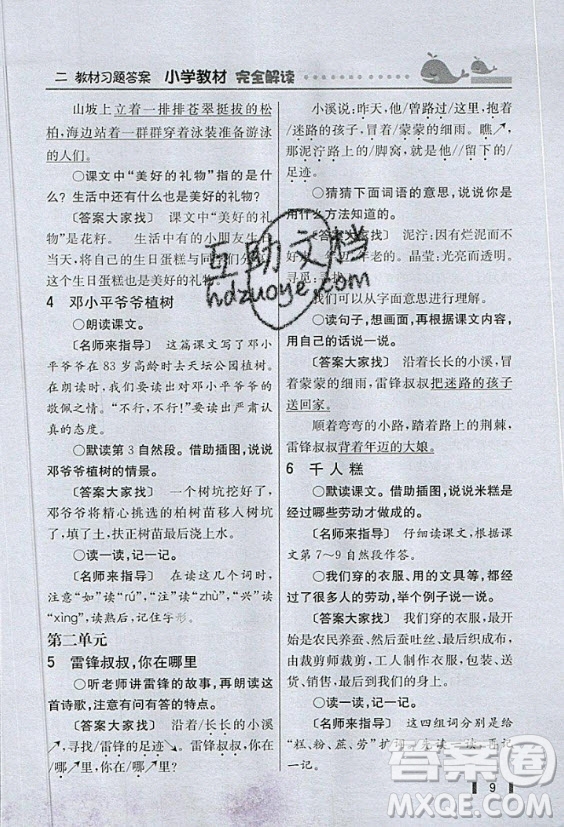 二 教材习题答案 小学教材 完全解读
山坡上立着一排排苍翠挺拔的松
柏,海边站着一群群穿着泳装准备游泳
的人们。
○课文中“美好的礼物”指的是什
么?生活中还有什么也是美好的礼物?
〔答案大家找〕 课文中“美好的礼
物”是花籽。 生活中的小朋友生
日时的生日蛋糕也是美好的礼物,
这个生日蛋糕也是美好的礼物。
4 邓小平爷爷植树
○朗读课文。
〔名师来指导〕 这篇课文写了邓小
平爷爷在 83 岁高龄时去天坛公园植树。
在朗读时,我们要读出对邓小平爷爷的
敬佩之情。“不行,不行!”要读出严肃认
真的态度。
○默读第 3 自然段。借助插图,说说
邓爷爷植树的情景。
〔答案大家找〕 一个树坑挖好了,
邓爷爷将精心挑选的柏树苗移入树坑
中,填了土,扶正树苗最后浇水。
○读一读,记一记。
〔名师来指导〕 在读这几个词时,
注意“如”读“rú”,“注”读“zhù”,“兴”读
“xìng”,读熟后,记住字形。
第二单元
5 雷锋叔叔,你在哪里
○听老师讲雷锋的故事,再朗读这
首诗歌,注意有问有答的特点。
〔答案大家找〕 沿着/长长的小溪
↗,寻找/雷锋的足迹↘。雷锋叔叔,你在
/哪里↗,你在/哪里↗。
小溪说:昨天,他/曾路过/这里,抱着
/迷路的孩子,冒着/蒙蒙的细雨。瞧↗,
那泥泞里的/脚窝,就是他/留下的/
足迹。
○猜猜下面词语的意思,说说你是
用什么方法知道的。
〔答案大家找〕 泥泞:因有烂泥而不
年老的。晶莹:光亮而透明。
寻觅:寻找。
我们可以从字面意思进行理解。
○读句子,想画面,再根据课文内容,
用自己的话说一说。
〔答案大家找〕 沿着长长的小溪,
冒着蒙蒙的细雨,雷锋叔叔把迷路的孩子
送回家。
顺着弯弯的小路,踏着路上的荆棘,
雷锋叔叔背着年迈的大娘。
6 千人糕
○默读课文。借助插图,说说米糕是
经过哪些劳动才做成的。
〔名师来指导〕 仔细读课文,根据课
文第 7～9 自然段作答。
○我们穿的衣服、用的文具等,都经
过很多人的劳动,举个例子说一说。
〔答案大家找〕 我们穿的衣服,最开
始由农民养蚕,然后工人织布、裁剪,由
裁剪师裁剪,工人制作、包装、送到商场销
售,最后到我们手中。
○读一读,记一记。
〔名师来指导〕 这四组词分别是给
“糕、粉、蔗、劳”扩词,先读一读,再记
一记。
9
互助文档
hdzuoye.com
答案圈
MXQE.COM